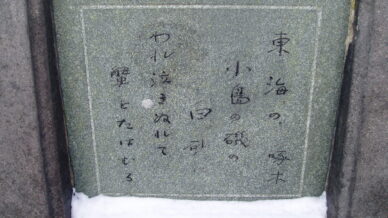 東海の 啄木
小島の磯の
白砂に
われ泣きぬれて
蟹とたはむる